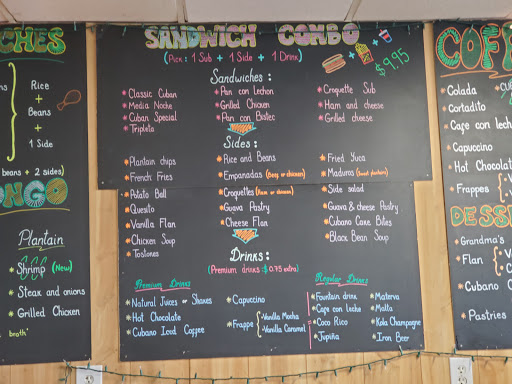 CHES
Rice
+
Beans
+
1 Side
beans + 2 sides)
ONGO
Plantain
* Shrimp (New)
* Steak and onions
* Grilled Chicken
broth
SANDWICH COMBO
(Pick: 1 Sub + 1 Side + 1 Drink)
$9.95
Sandwiches:
* Classic Cuban
* Media Noche
* Cuban Special
* Tripleta
* Pan con Lechon
* Grilled Chicken
* Pan con Bistec
* Croquette Sub
* Ham and cheese
* Grilled cheese
Sides:
* Plantain chips
* French Fries
* Potato Ball
* Quesito
* Vanilla Flan
* Chicken Soup
* Tostones
* Rice and Beans
* Empanadas (Beef or chicken)
* Croquettes (Ham or chicken)
* Guava Pastry
* Cheese Flan
* Fried Yuca
* Maduros (Sweet plantain)
* Side salad
* Guava & cheese Pastry
* Cubano Cake Bites
* Black Bean Soup
Drinks:
(Premium drinks $0.75 extra)
Premium Drinks
* Natural Juices or Shakes
* Hot Chocolate
* Cubano Iced Coffee
* Capuccino
* Frappe { Vanilla Mocha
Vanilla Caramel
Regular Drinks
* Fountain drink
* Cafe con leche
* Coco Rico
* Jupiña
* Materva
* Malta
* Kola Champagne
* Iron Beer
COF
* Colada
* Cortadito
* Cafe con lech
* Capuccino
* Hot Chocolat
* Frappes {
DESSE
* Grandma's
* Flan {
* Cubano C
* Pastries